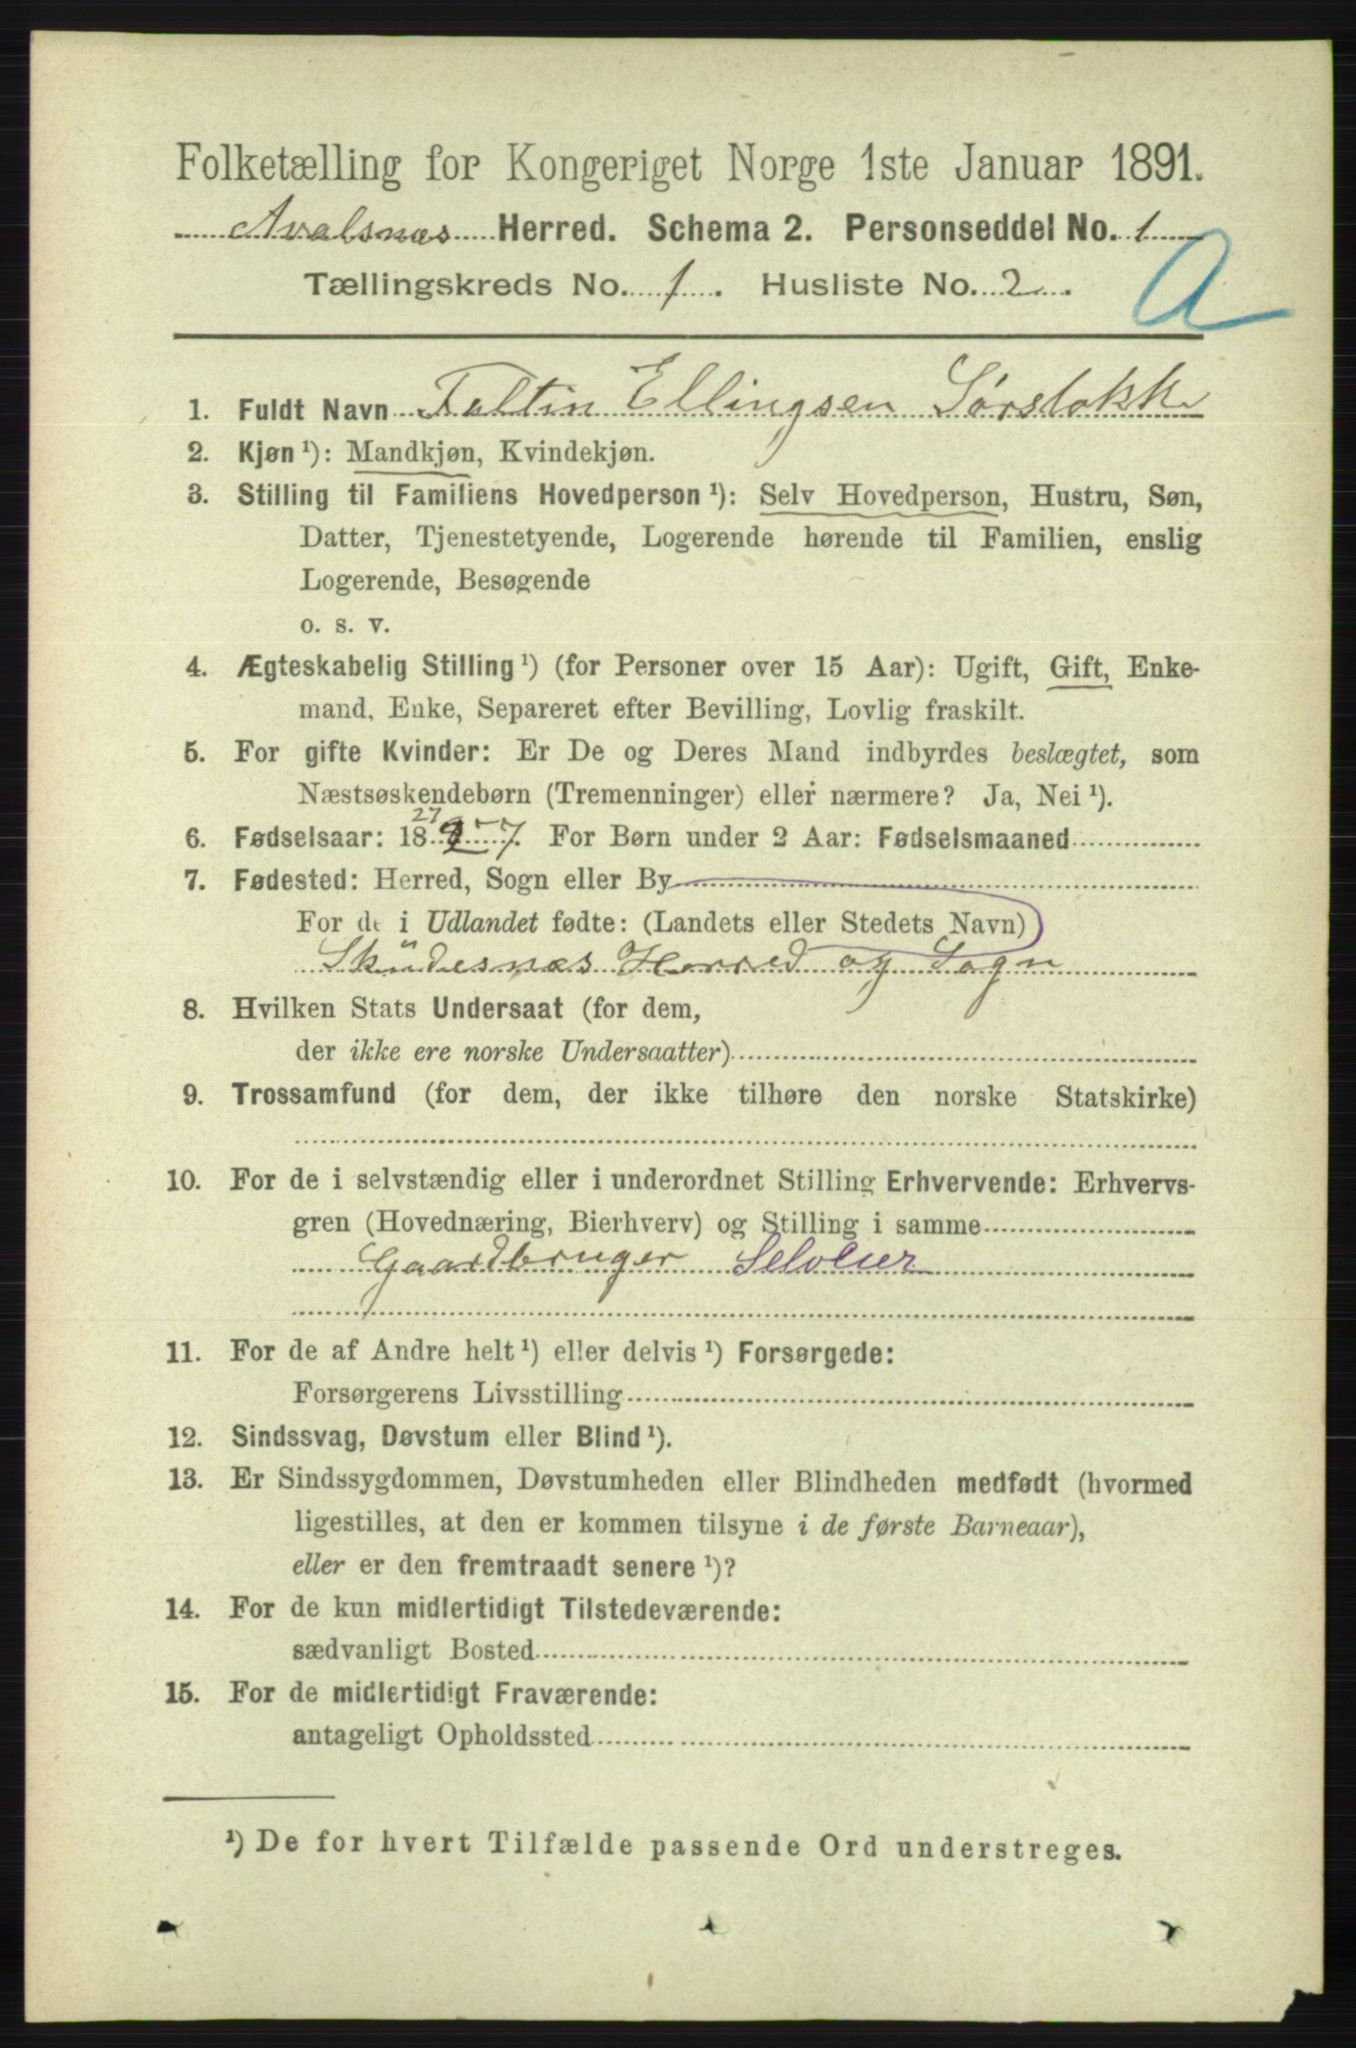 Folketælling for Kongeriget Norge 1ste Januar 1891.
Avalsnæs Herred. Schema 2. Personseddel No. 1
Tællingskreds No. 1. Husliste No. 2.
A
1. Fuldt Navn Faltin Ellingsen Sørstokke
2. Kjøn ¹): Mandkjøn, Kvindekjøn.
3. Stilling til Familiens Hovedperson ¹): Selv Hovedperson, Hustru, Søn,
Datter, Tjenestetyende, Logerende hørende til Familien, enslig
Logerende, Besøgende
o. s. v.
4. Ægteskabelig Stilling ¹) (for Personer over 15 Aar): Ugift, Gift, Enke-
mand, Enke, Separeret efter Bevilling, Lovlig fraskilt.
5. For gifte Kvinder: Er De og Deres Mand indbyrdes beslægtet, som
Næstsøskendebørn (Tremenninger) eller nærmere? Ja, Nei ¹).
27
6. Fødselsaar: 18 7. For Børn under 2 Aar: Fødselsmaaned
7. Fødested: Herred, Sogn eller By
For de i Udlandet fødte: (Landets eller Stedets Navn)
Skudesnæs Herred og Sogn
8. Hvilken Stats Undersaat (for dem,
der ikke ere norske Undersaatter)
9. Trossamfund (for dem, der ikke tilhøre den norske Statskirke)
10. For de i selvstændig eller i underordnet Stilling Erhvervende: Erhvervs-
gren (Hovednæring, Bierhverv) og Stilling i samme
Gaardbruger Selveier
11. For de af Andre helt ¹) eller delvis ¹) Forsørgede:
Forsørgerens Livsstilling
12. Sindssvag, Døvstum eller Blind ¹).
13. Er Sindssygdommen, Døvstumheden eller Blindheden medfødt (hvormed
ligestilles, at den er kommen tilsyne i de første Barneaar),
eller er den fremtraadt senere ¹)?
14. For de kun midlertidigt Tilstedeværende:
sædvanligt Bosted
15. For de midlertidigt Fraværende:
antageligt Opholdssted
¹) De for hvert Tilfælde passende Ord understreges.